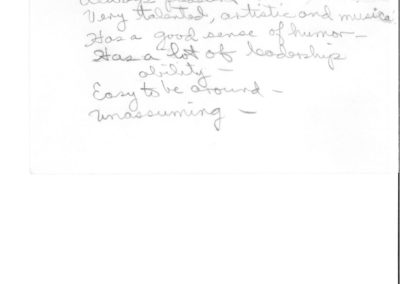 Very talented, artistic and musical
Has a good sense of humor –
Has a lot of leadership
ability –
Easy to be around –
unassuming –